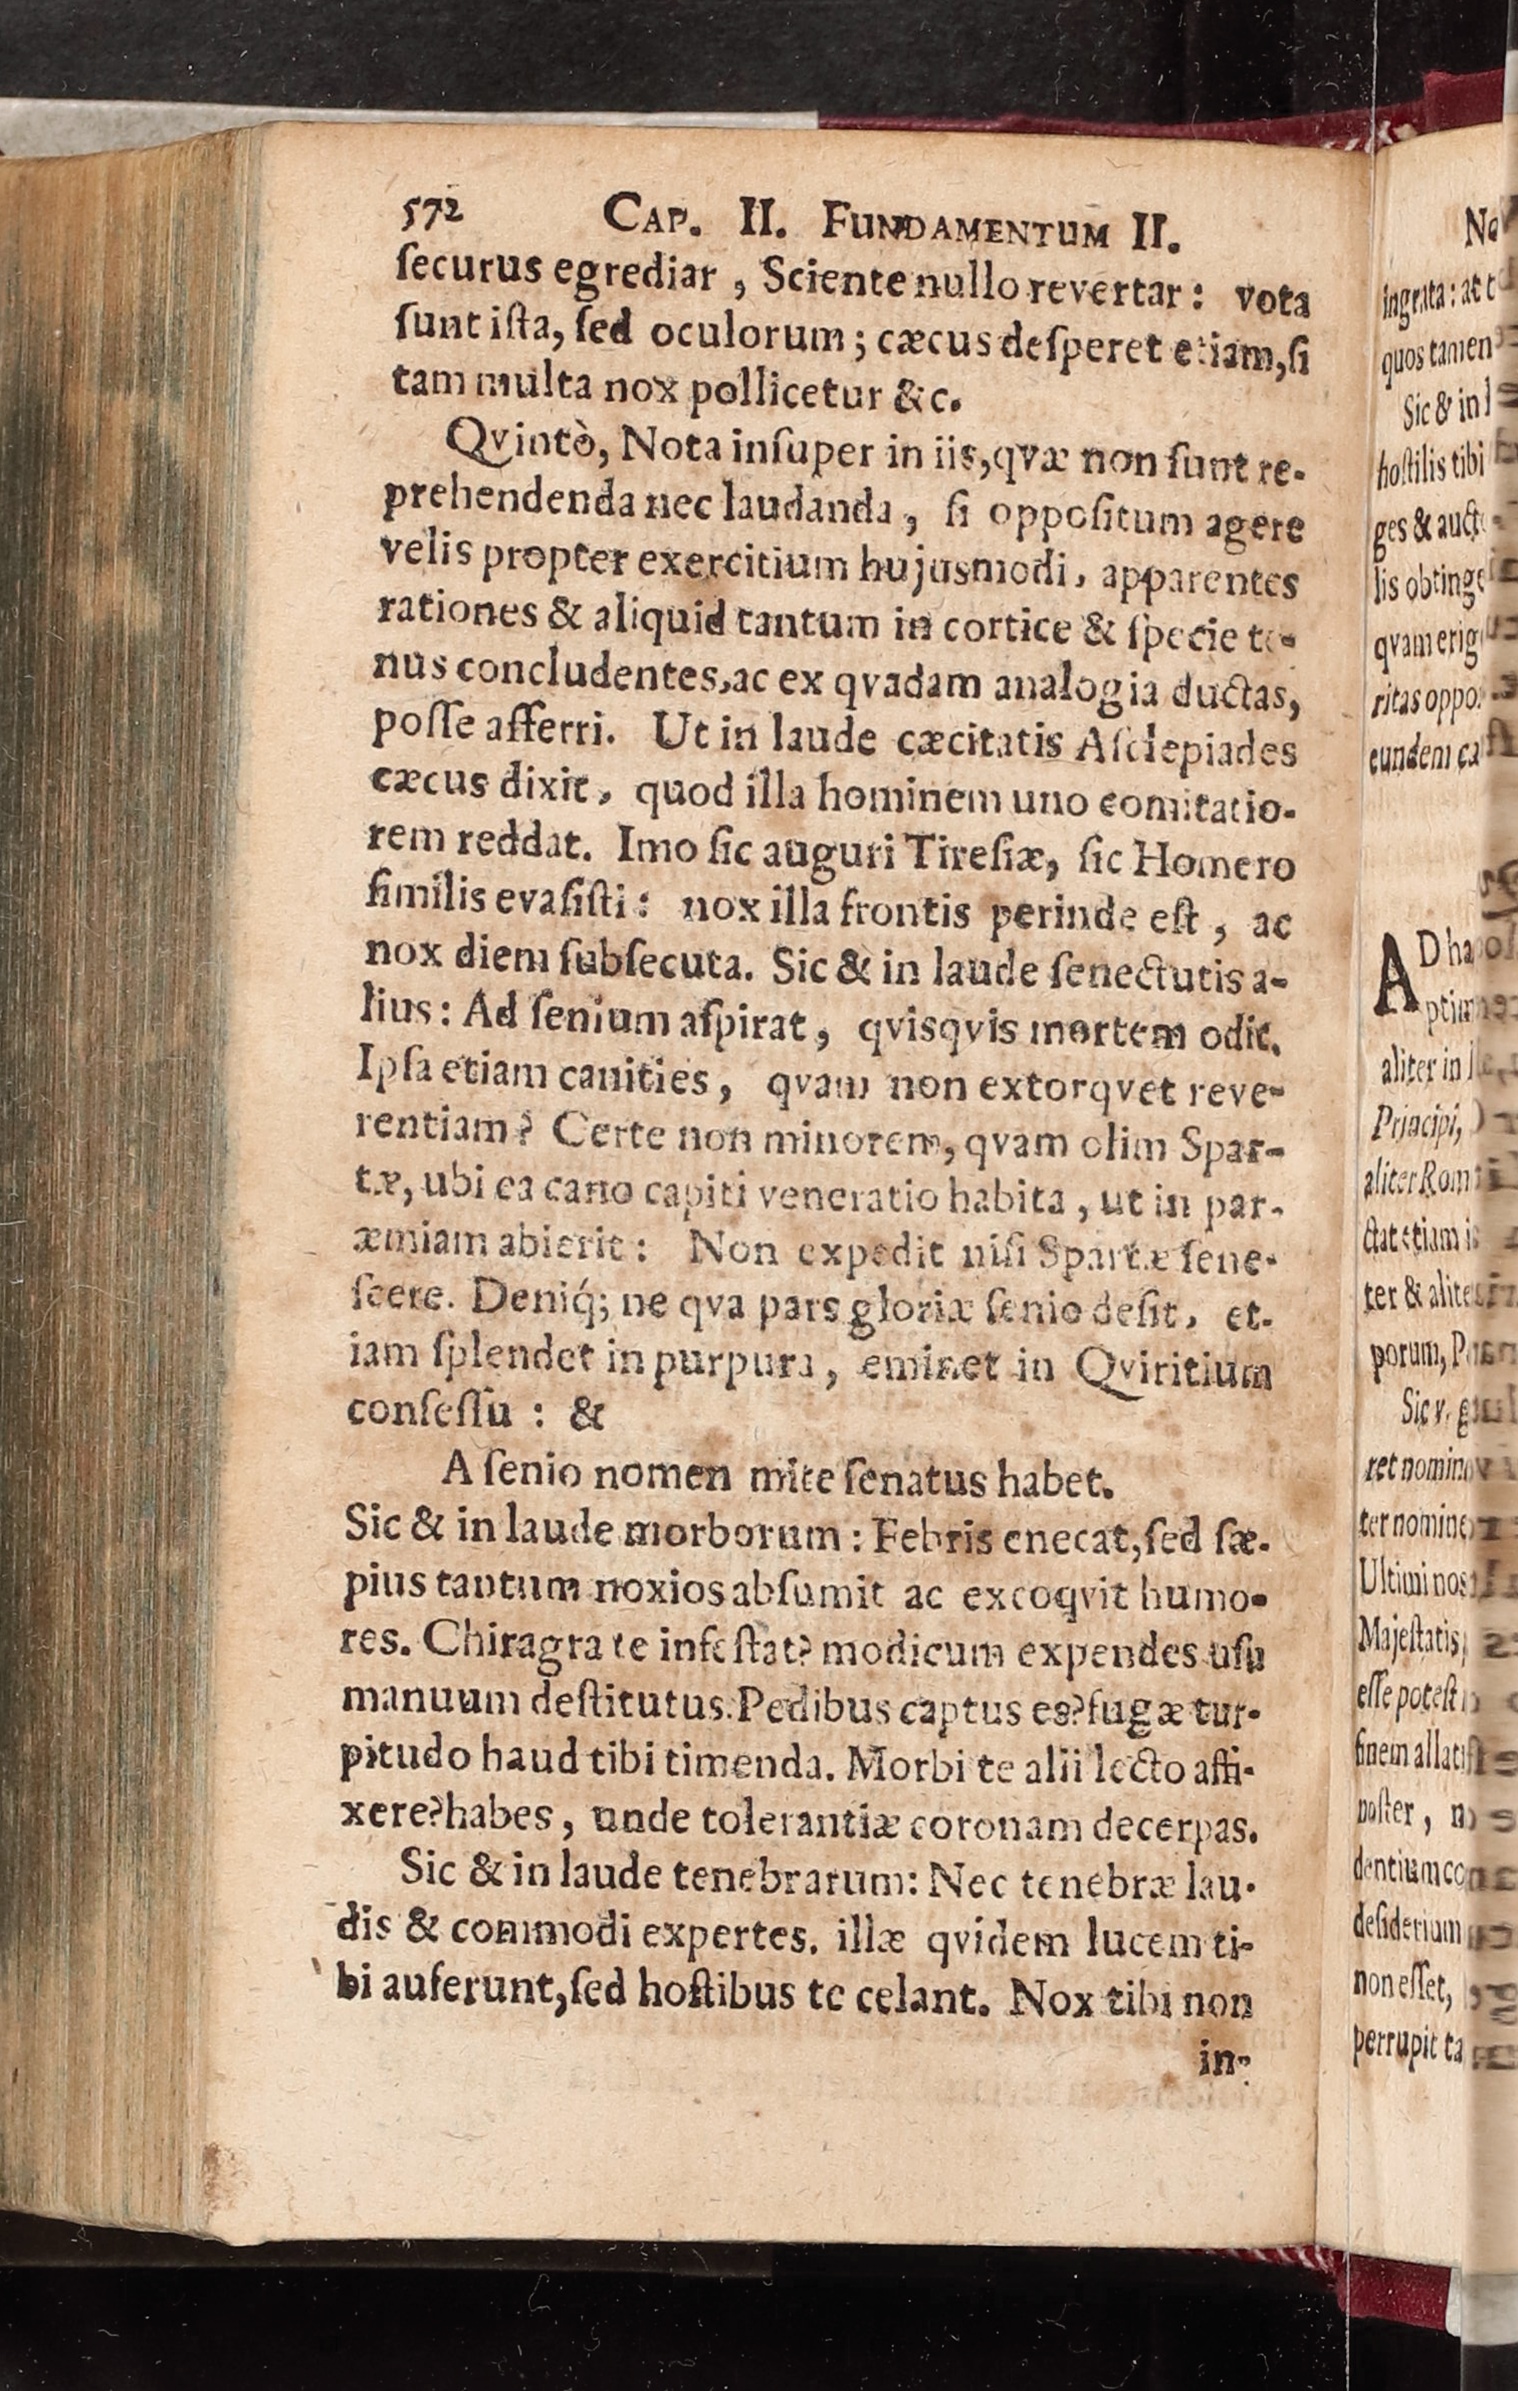 572 CAP. II. FUNDAMENTUM II.
ſecurus egrediar, Sciente nullo revertar: vota
ſunt iſta, ſed oculorum; cæcus deſperet etiam, ſi
tam multa nox pollicetur &c.
Qvintò, Nota inſuper in iis, qvæ non ſunt re-
prehendenda nec laudanda, ſi oppoſitum agere
velis propter exercitium hujusmodi, apparentes
rationes & aliquid tantum in cortice & ſpecie te-
nus concludentes, ac ex qvadam analogia ductas,
poſſe afferri. Ut in laude cæcitatis Aſclepiades
cæcus dixit, quod illa hominem uno comitatio-
rem reddat. Imo ſic auguri Tireſiæ, ſic Homero
ſimilis evaſiſti: nox illa frontis perinde eſt, ac
nox diem ſubſecuta. Sic & in laude ſenectutis a-
lius: Ad ſenium aſpirat, qvisqvis mortem odit.
Ipſa etiam canities, qvam non extorqvet reve-
rentiam? Certe non minorem, qvam olim Spar-
tæ, ubi ea cano capiti veneratio habita, ut in par-
æmiam abierit: Non expedit niſi Spartæ ſene-
ſcere. Deniq́; ne qva pars gloriæ ſenio deſit, et-
iam ſplendet in purpura, eminet in Qviritium
conſeſſu: &
A ſenio nomen mite ſenatus habet.
Sic & in laude morborum: Febris enecat, ſed ſæ-
pius tantum noxios abſumit ac excoqvit humo-
res. Chiragra te infeſtat? modicum expendes uſu
manuum deſtitutus. Pedibus captus es? fugæ tur-
pitudo haud tibi timenda. Morbi te alii lecto affi-
xere? habes, unde tolerantiæ coronam decerpas.
Sic & in laude tenebrarum: Nec tenebræ lau-
dis & commodi expertes. illæ qvidem lucem ti-
bi auferunt, ſed hoſtibus te celant. Nox tibi non
in-
ingrata: at
quos tamen
Sic & in
hoſtilis tibi
ges & auct
lis obtinge
qvam erig
ritas oppo
eundem ca
AD ha
ptim
aliter in
Principi,
aliter Rom
ctat etiam i
ter & alite
porum, P
Sic v. g
ret nomin
ter nomine
Ultimi nos
Majeſtatis
eſſe poteſt
finem allat
noſter, n
dentium co
deſiderium
non eſſet,
perrupit ta